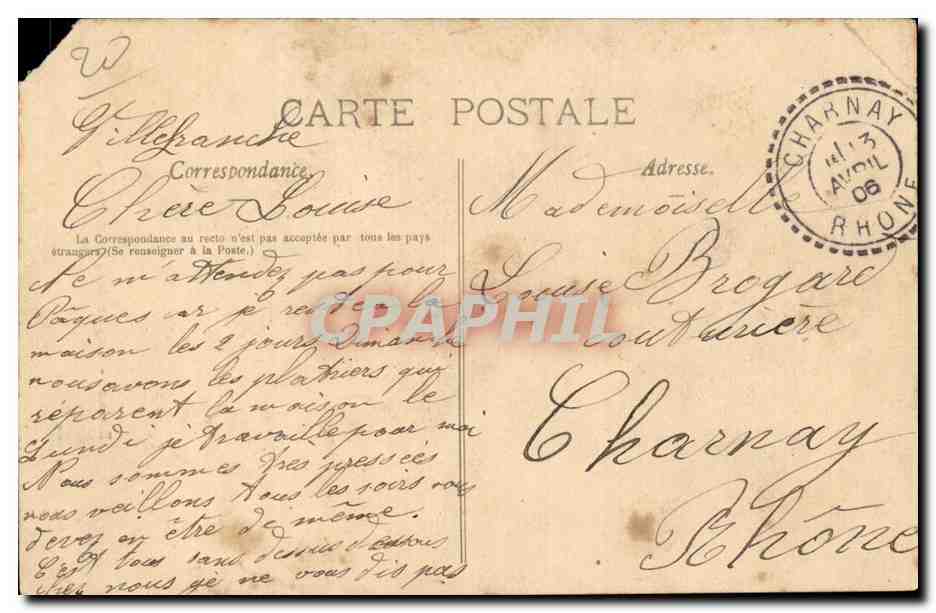 CARTE POSTALE
Villefranche
Correspondance.
Chère Louise
La Correspondance au recto n'est pas acceptée par tous les pays
étrangers (Se renseigner à la Poste.)
Ne m'attendez pas pour
Pâques car je reste à la
maison les 2 jours Dimanche
nous avons les platriers qui
réparent la maison le
Lundi je travaille pour moi
Nous sommes très pressées
nous veillons tous les soirs vous
devez en être de même.
C'est tous sans dessus dessous
chez nous je ne vous dis pas
Adresse.
Mademoiselle
Louise Brogard
couturière
Charnay
Rhône
CHARNAY
13
AVRIL
06
RHONE
CPAPHIL